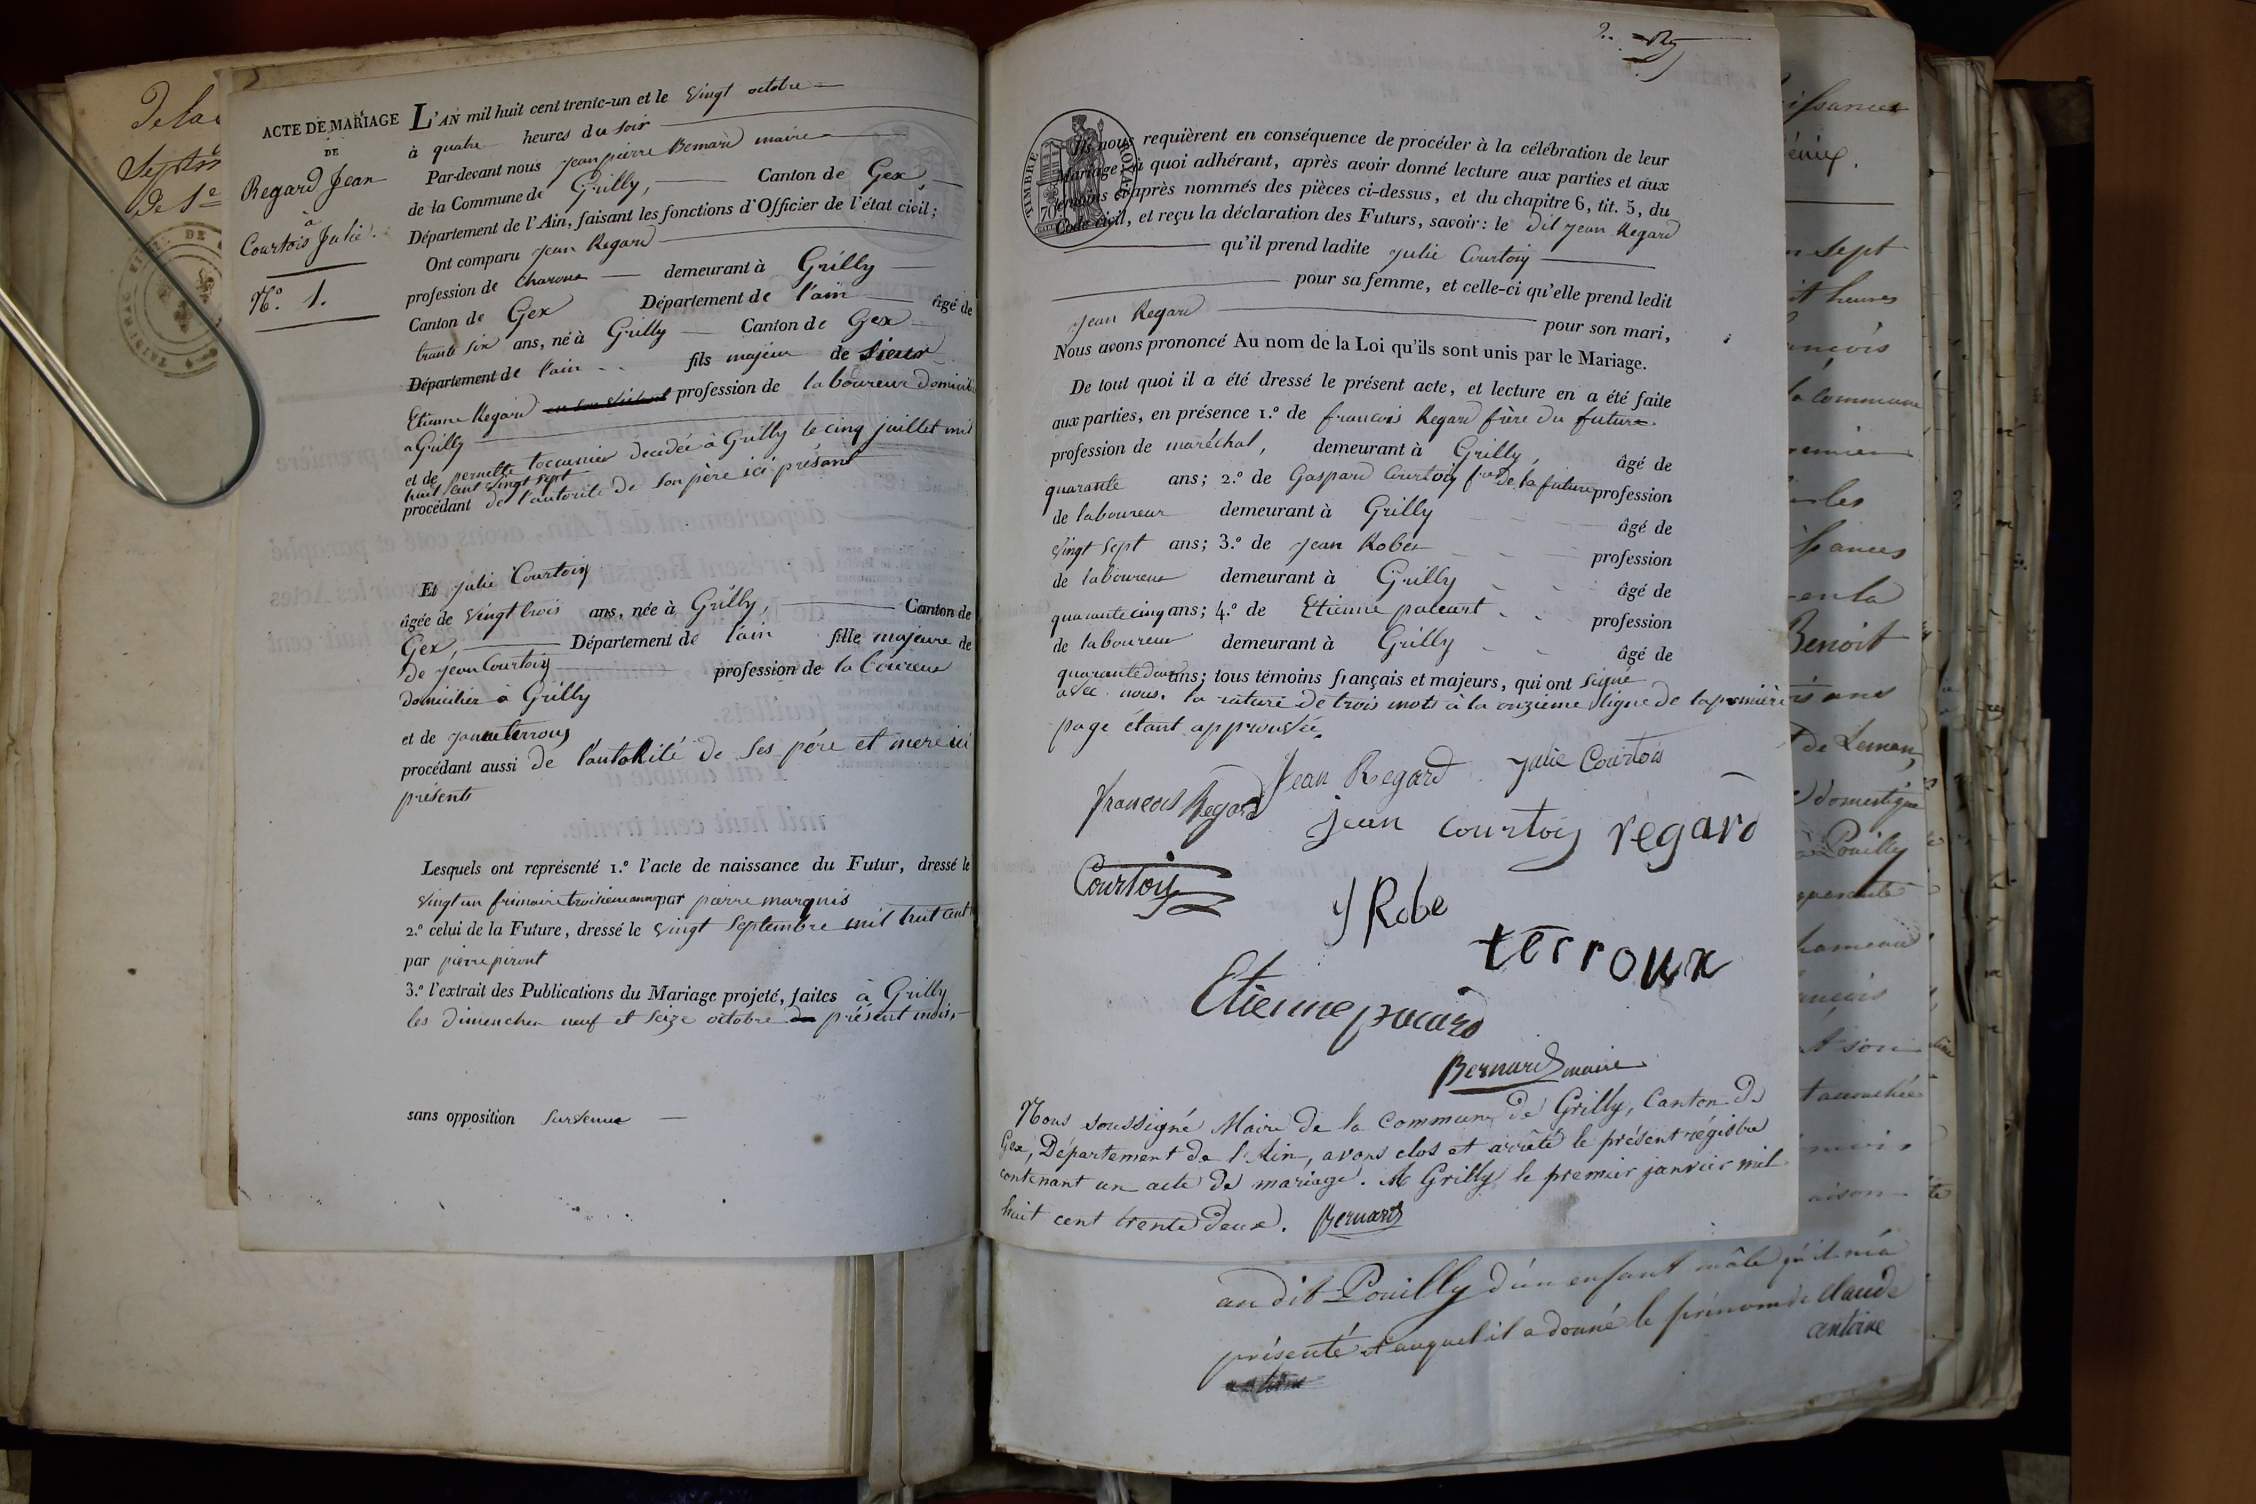 ACTE DE MARIAGE
DE
Regard Jean
à
Courtois Julie.
N.° 1.
L'AN mil huit cent trente-un et le vingt octobre
à quatre heures du soir
Par-devant nous jean pierre Bernard maire
de la Commune de Grilly, Canton de Gex,
Département de l'Ain, faisant les fonctions d'Officier de l'état civil;
Ont comparu jean Regard
profession de charon demeurant à Grilly
Canton de Gex Département de l'ain âgé de
trante six ans, né à Grilly Canton de Gex
Département de l'ain fils majeur de sieur
Etienne Regard profession de laboureur domicilié
a Grilly
et de pernette décédée à Grilly le cinq juillet mil
huit cent vingt sept
procédant de l'autorité de son père ici présant
Et julie Courtois
âgée de vingt trois ans, née à Grilly, Canton de
Gex Département de l'ain fille majeure de
de jean Courtois profession de laboureur
domicilier à Grilly
et de terroux
procédant aussi de l'autorité de ses père et mere ici
présents
Lesquels ont représenté 1.° l'acte de naissance du Futur, dressé le
vingt un frimaire troisieme anne par pierre marquis
2.° celui de la Future, dressé le vingt septembre mil huit cent
par pierre
3.° l'extrait des Publications du Mariage projeté, faites à Grilly
les dimenches neuf et seize octobre présent mois,
sans opposition survenue
TIMBRE ROYAL
70
Ils nous requièrent en conséquence de procéder à la célébration de leur
Mariage, à quoi adhérant, après avoir donné lecture aux parties et aux
témoins ci-après nommés des pièces ci-dessus, et du chapitre 6, tit. 5, du
Code civil, et reçu la déclaration des Futurs, savoir: le dit jean Regard
qu'il prend ladite julie Courtois
pour sa femme, et celle-ci qu'elle prend ledit
jean Regard pour son mari,
Nous avons prononcé Au nom de la Loi qu'ils sont unis par le Mariage.
De tout quoi il a été dressé le présent acte, et lecture en a été faite
aux parties, en présence 1.° de francois Regard frère du futur
profession de maréchal, demeurant à Grilly, âgé de
quarante ans; 2.° de Gaspard Courtois de la future profession
de laboureur demeurant à Grilly âgé de
vingt sept ans; 3.° de jean Robe profession
de laboureur demeurant à Grilly âgé de
quarante cinq ans; 4.° de Etienne profession
de laboureur demeurant à Grilly âgé de
quarante deux ans; tous témoins français et majeurs, qui ont signé
avec nous. la rature de trois mots à la onzieme ligne de la premiere
page étant approuvée.
Jean Regard julie Courtois
francois Regard jean courtois regard
Courtois
J Robe
terroux
Etienne
Bernard maire
Nous soussigné Maire de la commune de Grilly, Canton de
Gex, Département de l'Ain, avons clos et arrêté le présent régistre
contenant un acte de mariage. A Grilly le premier janvier mil
huit cent trente deux. Bernard
au dit Pouilly d'un enfant mâle qu'il m'a
présenté et auquel il a donné le prénom de Claude
antoine